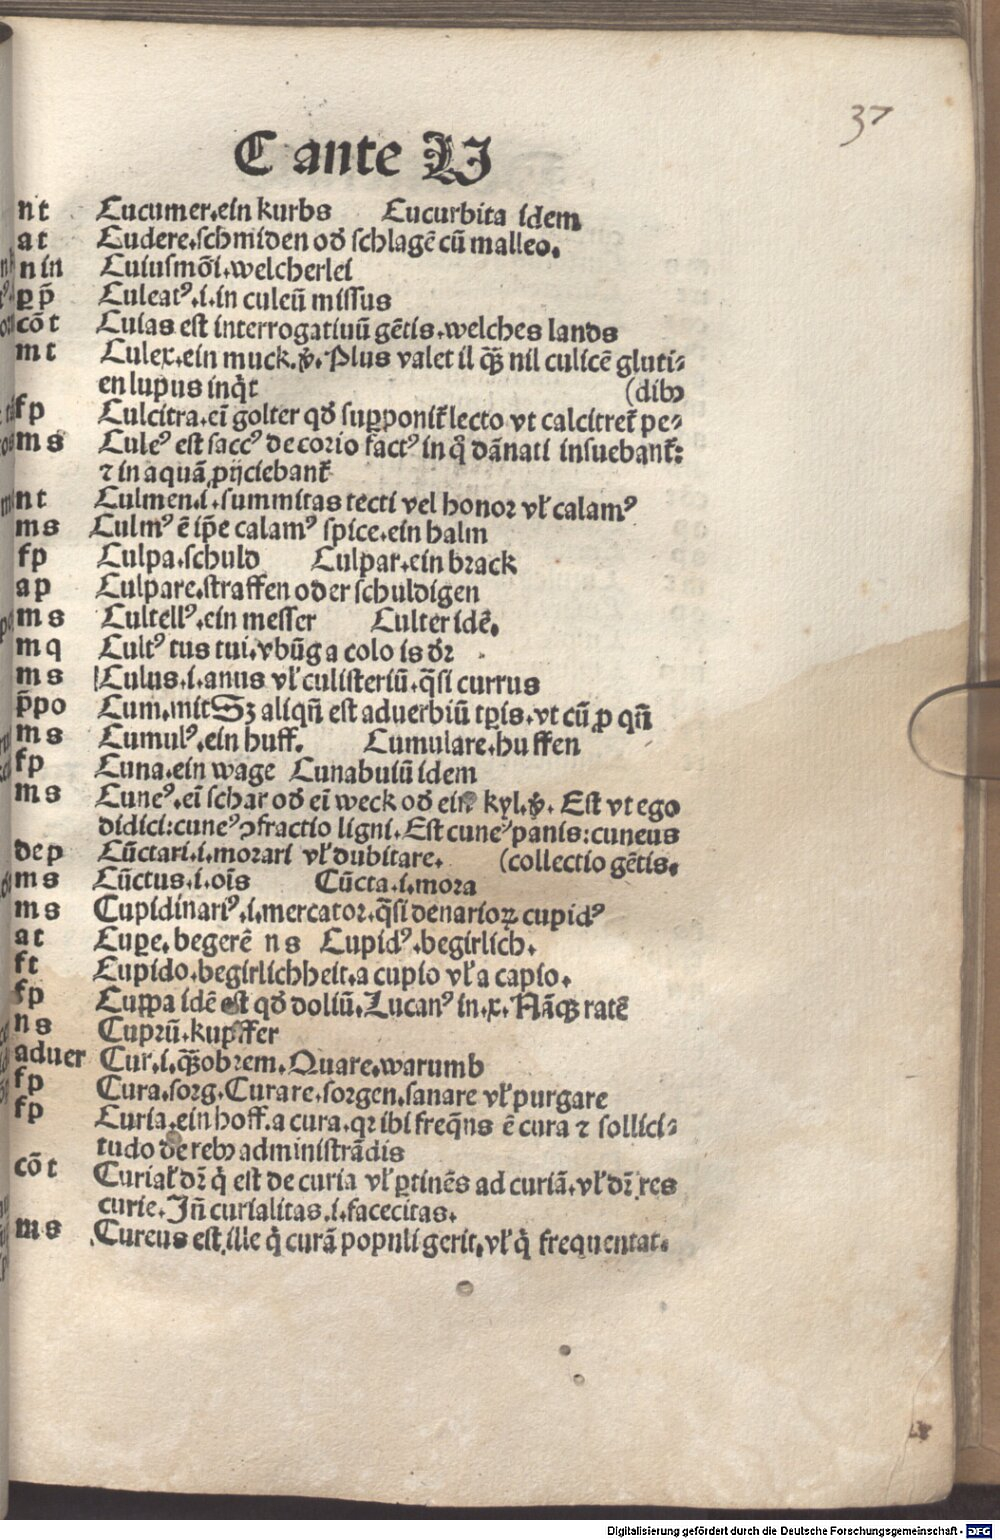 37
C ante U
nt Cucumer.ein kurbs Cucurbita idem
at Cudere.schmiden od̛ schlagē cū malleo.
n in Cuiusmōi.welcherlei
p p̄ Culeatꝰ.i.in culeū missus
cōt Cuias est interrogatiuū gētis.welches lands
mt Culex.ein muck.v̛.Plus valet il qꝫ nil culicē gluti⸗
en lupus inq̇t (dibꝰ
fp Culcitra.eī golter qd̛ supponit̛ lecto vt calcitret̛ pe⸗
ms Culeꝰ est saccꝰ de corio factꝰ in q̊ dānati insuebant̛:
⁊ in aquā ꝓijciebant̛
nt Culmen.i.summitas tecti vel honor vl̛ calamꝰ
ms Culmꝰ ē ip̄e calamꝰ spice.ein halm
fp Culpa.schuld Culpar.ein brack
ap Culpare.straffen oder schuldigen
ms Cultellꝰ.ein messer Culter idē.
mq Cultꝰ tus tui.vbūg a colo is d̛r
ms Culus.i.anus vl̛ culisteriū.q̄si currus
p̄po Cum.mit Sꝫ aliqn̄ est aduerbiū tp̄is.vt cū ꝓ qn̄
ms Cumulꝰ.ein huff. Cumulare.huffen
fp Cuna.ein wage Cunabulū idem
ms Cuneꝰ.eī schar od̛ eī weck od̛ ein kyl.v̛. Est vt ego
didici:cuneꝰ ꝯfractio ligni.Est cuneꝰ panis:cuneus
dep Cūctari.i.morari vl̛ dubitare. (collectio gētis.
ms Cūctus.i.oīs Cūcta.i.mora
ms Cupidinariꝰ.i.mercator.q̄si denarioꝝ cupidꝰ
at Cuꝑe.begerē ns Cupidꝰ.begirlich.
ft Cupido.begirlichheit.a cupio vl̛ a capio.
fp Cuppa idē est qd̛ doliū.Lucanꝰ in.x.Nāqꝫ ratē
ns Cuprū.kupffer
aduer Cur.i.qꝫobrem.Quare.warumb
fp Cura.sorg.Curare.sorgen.sanare vl̛ purgare
fp Curia.ein hoff.a cura.qꝛ ibi freq̄ns ē cura ⁊ sollici⸗
tudo de rebꝰ administrādis
cōt Curial̛ dr̄ q̇ est de curia vl̛ ꝑtinēs ad curiā.vl̛ dr̄ res
curie.Jn̄ curialitas.i.facecitas.
ms Cureus est ille q̇ curā populi gerit.vl̛ q̇ frequentat.
Digitalisierung gefördert durch die Deutsche Forschungsgemeinschaft - DFG